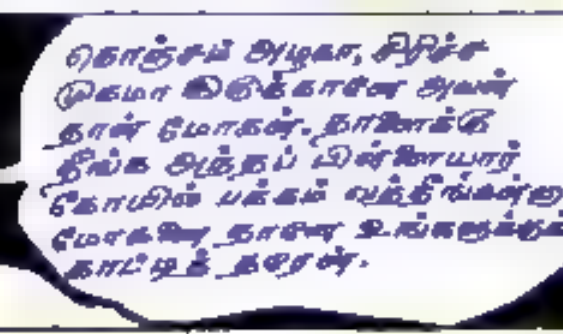 கொஞ்சம் அழகா, சிரிச்ச
முகமா இருக்கானே அவன்
தான் மோகன். நாளைக்கு
நீங்க அந்தப் பிள்ளையார்
கோயில் பக்கம் வந்தீங்கன்னு
மோகனை நானே உங்களுக்குக்
காட்டித் தரேன்.